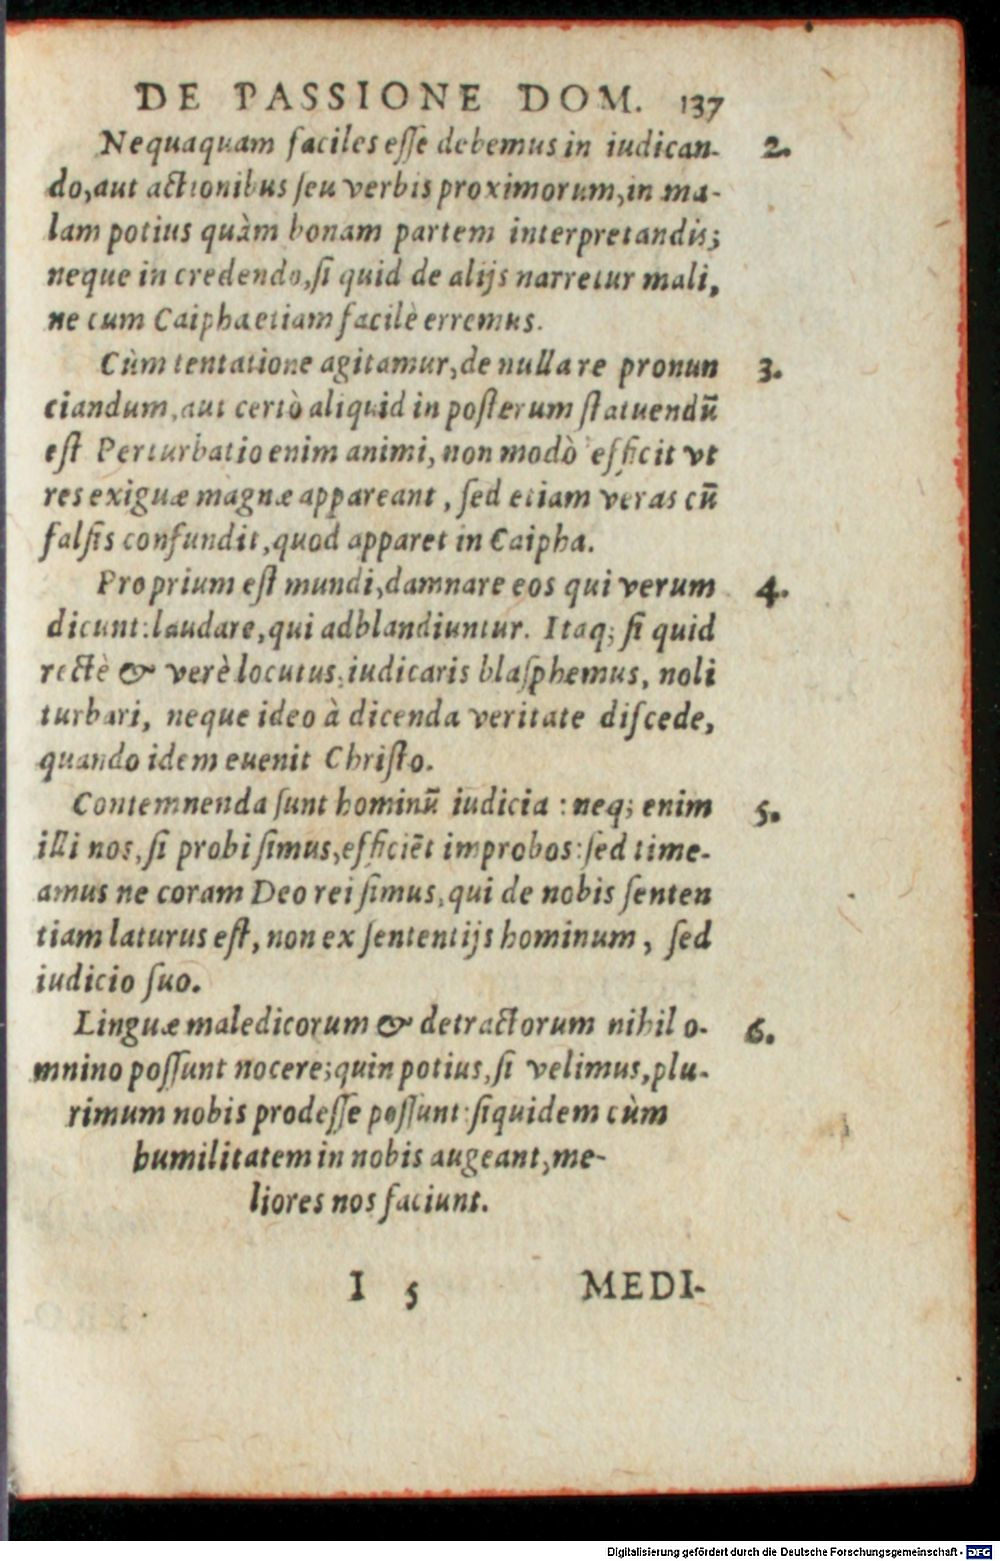 DE PASSIONE DOM. 137
Nequaquam faciles eſſe debemus in iudican- 2.
do, aut actionibus ſeu verbis proximorum, in ma-
lam potius quàm bonam partem interpretandis;
neque in credendo, ſi quid de alijs narretur mali,
ne cum Caipha etiam facilè erremus.
Cùm tentatione agitamur, de nulla re pronun 3.
ciandum, aut certò aliquid in poſterum ſtatuendū
eſt Perturbatio enim animi, non modò efficit vt
res exiguæ magnæ appareant, ſed etiam veras cū
falſis confundit, quod apparet in Caipha.
Proprium eſt mundi, damnare eos qui verum 4.
dicunt: laudare, qui adblandiuntur. Itaq; ſi quid
rectè & verè locutus, iudicaris blaſphemus, noli
turbari, neque ideo à dicenda veritate diſcede,
quando idem euenit Chriſto.
Contemnenda ſunt hominū iudicia: neq; enim 5.
illi nos, ſi probi ſimus, efficiēt improbos: ſed time-
amus ne coram Deo rei ſimus, qui de nobis ſenten
tiam laturus eſt, non ex ſententijs hominum, ſed
iudicio ſuo.
Linguæ maledicorum & detractorum nihil o- 6.
mnino poſſunt nocere; quin potius, ſi velimus, plu-
rimum nobis prodeſſe poſſunt: ſiquidem cùm
humilitatem in nobis augeant, me-
liores nos faciunt.
I 5 MEDI-
Digitalisierung gefördert durch die Deutsche Forschungsgemeinschaft - DFG